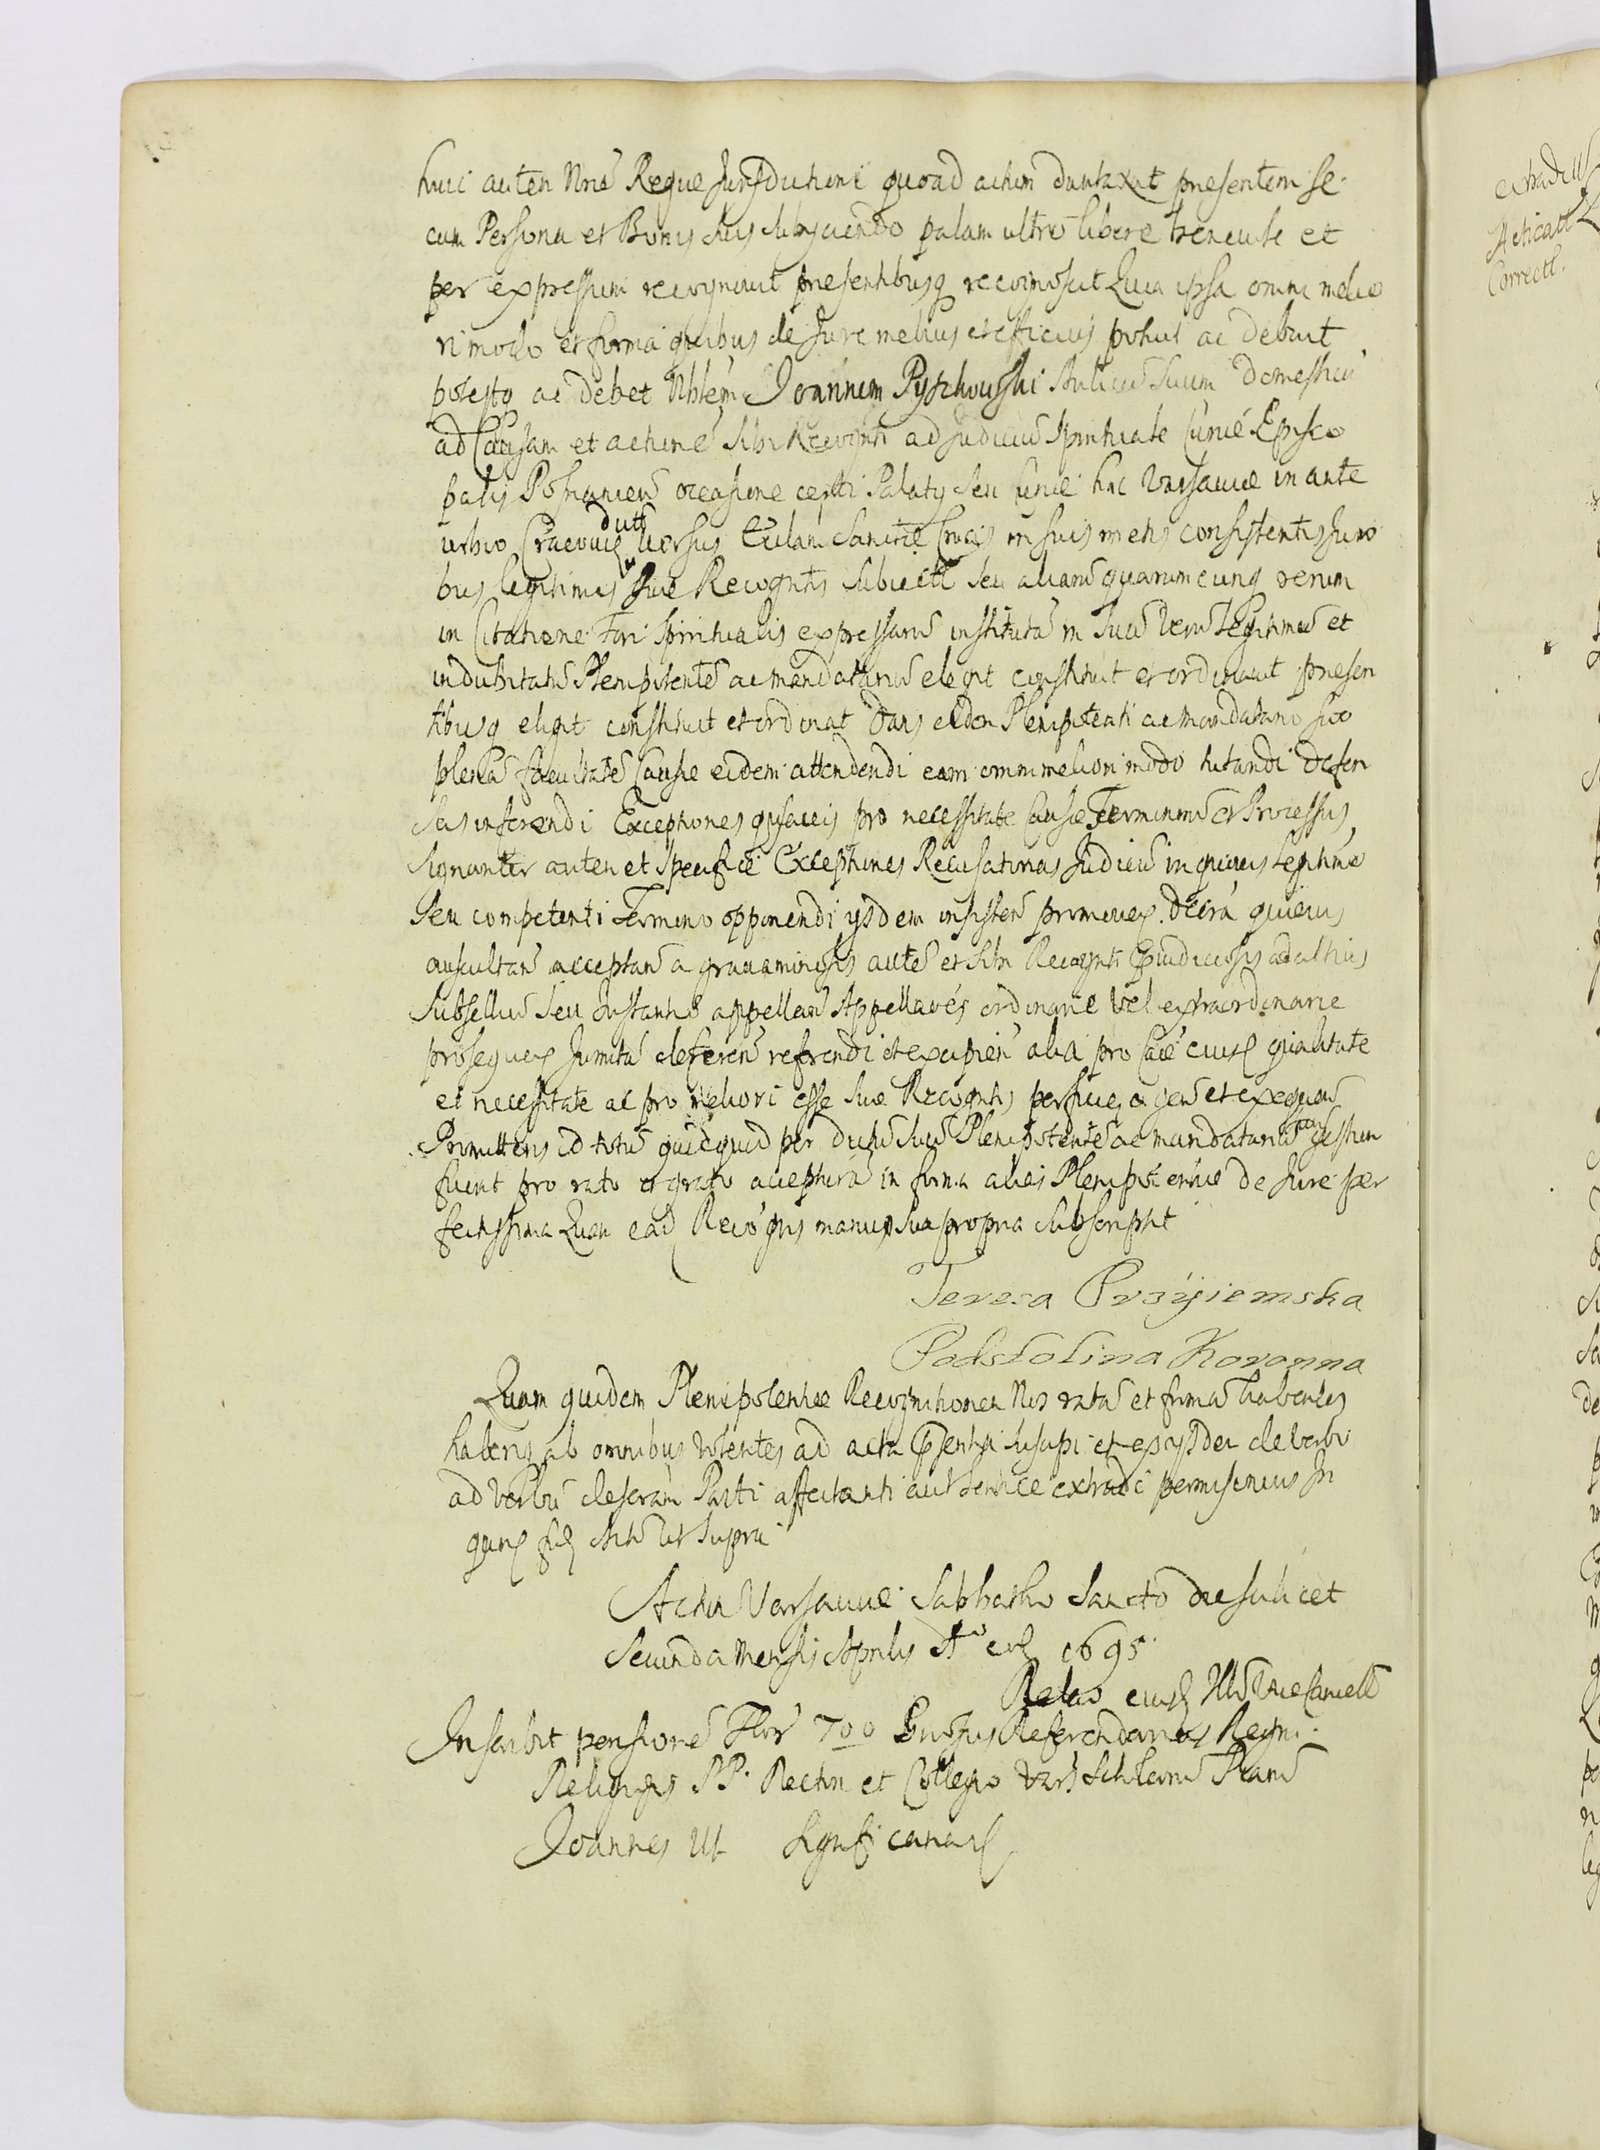 huic autem Nrae Regiae Jurisdictioni quoad actum duntaxat praesentem se
cum Persona et Bonis suis subijciendo palam ultro libere et
per expressum recognovit praesentibusq recognoscit Quia ipsa omni melio
ri modo et forma quibus de Jure melius et efficacius potuit ac debuit
potestq ac debet Nblem Joannem Pyszkowski Aulicum Suum Domesticu
ad Causam et actione sibi Recognti ad Judiciu Spirituale Curiae Episco
palis Posnanien occasione certi Palaty seu Curiae hac Varsaviae in ante
urbio Cracovien duct versus Eccliam Sanctae Crucis in suis metis consistentis Juri
bus legitimis suae Recogntis subiecti seu aliaru quarumcunq rerum
in Citatione Fori Spiritualis expressaru instituta in Suu Veru Legitimu et
indubitatu Plenipotente ac mandatariu elegit constituit et ordinavit praesen
tibusq eligit constituit et ordinat Dans eidem Plenipotenti ac Mandatario suo
plena facultate Causae eidem attendendi eam omni meliori modo tutandi defen
sas inferendi Exceptiones quasvis pro necessitate Causae Terminoru et Processus
signanter autem et specifice Exceptiones Recusatorias Judiciu in quovis legitimo
seu competenti Termino opponendi ysdem insisten promoven Decreta quaevis
auscultan acceptan a gravaminosis aute et sibi Recognti praeiudiciosis ad altius
Subselliu seu Instantia appellan Appellaoes ordinarie vel extraordinarie
prosequen Jurata deferen referendi et excipien alia pro Cae eius qualitate
et necessitate ac pro meliori esse suae Recogntis perficien agen et exequen
Promittens id totu quidquid per dictu suu Plenipotente ac mandatariu gestum
fuerit pro rato et grato acceptura in forma alias Plenipotentiae de Jure per
fectissima Quam ead Recogns manu sua propria subscripsit
Teresa Przyiemska
Podstolina Koronna
Quam quidem Plenipotentiae Recognitionem Nos rata et firma habentes
haberiq ab omnibus volentes ad acta praesentia suscipi et ex ysdem de verbo
ad verbu descriptam Parti affectanti authentice extradi permisimus In
quoru fid Actu ut supra
Actu Varsaviae Sabbatho Sancto die scilicet
Secunda Mensis Aprilis Ao eod 1695
Relao eiusd Vicecancell
Inscribit pensione Flor 700 Gnosus Referendarius Regni
Religiosis PP. Rectori et Collegio Vars Scholaru Piaru
Joannes III Significamus
extradit
Aeticatt
Correctt.